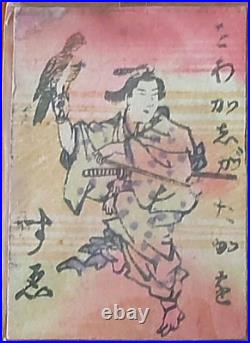 こわか志がたかを
すゑ